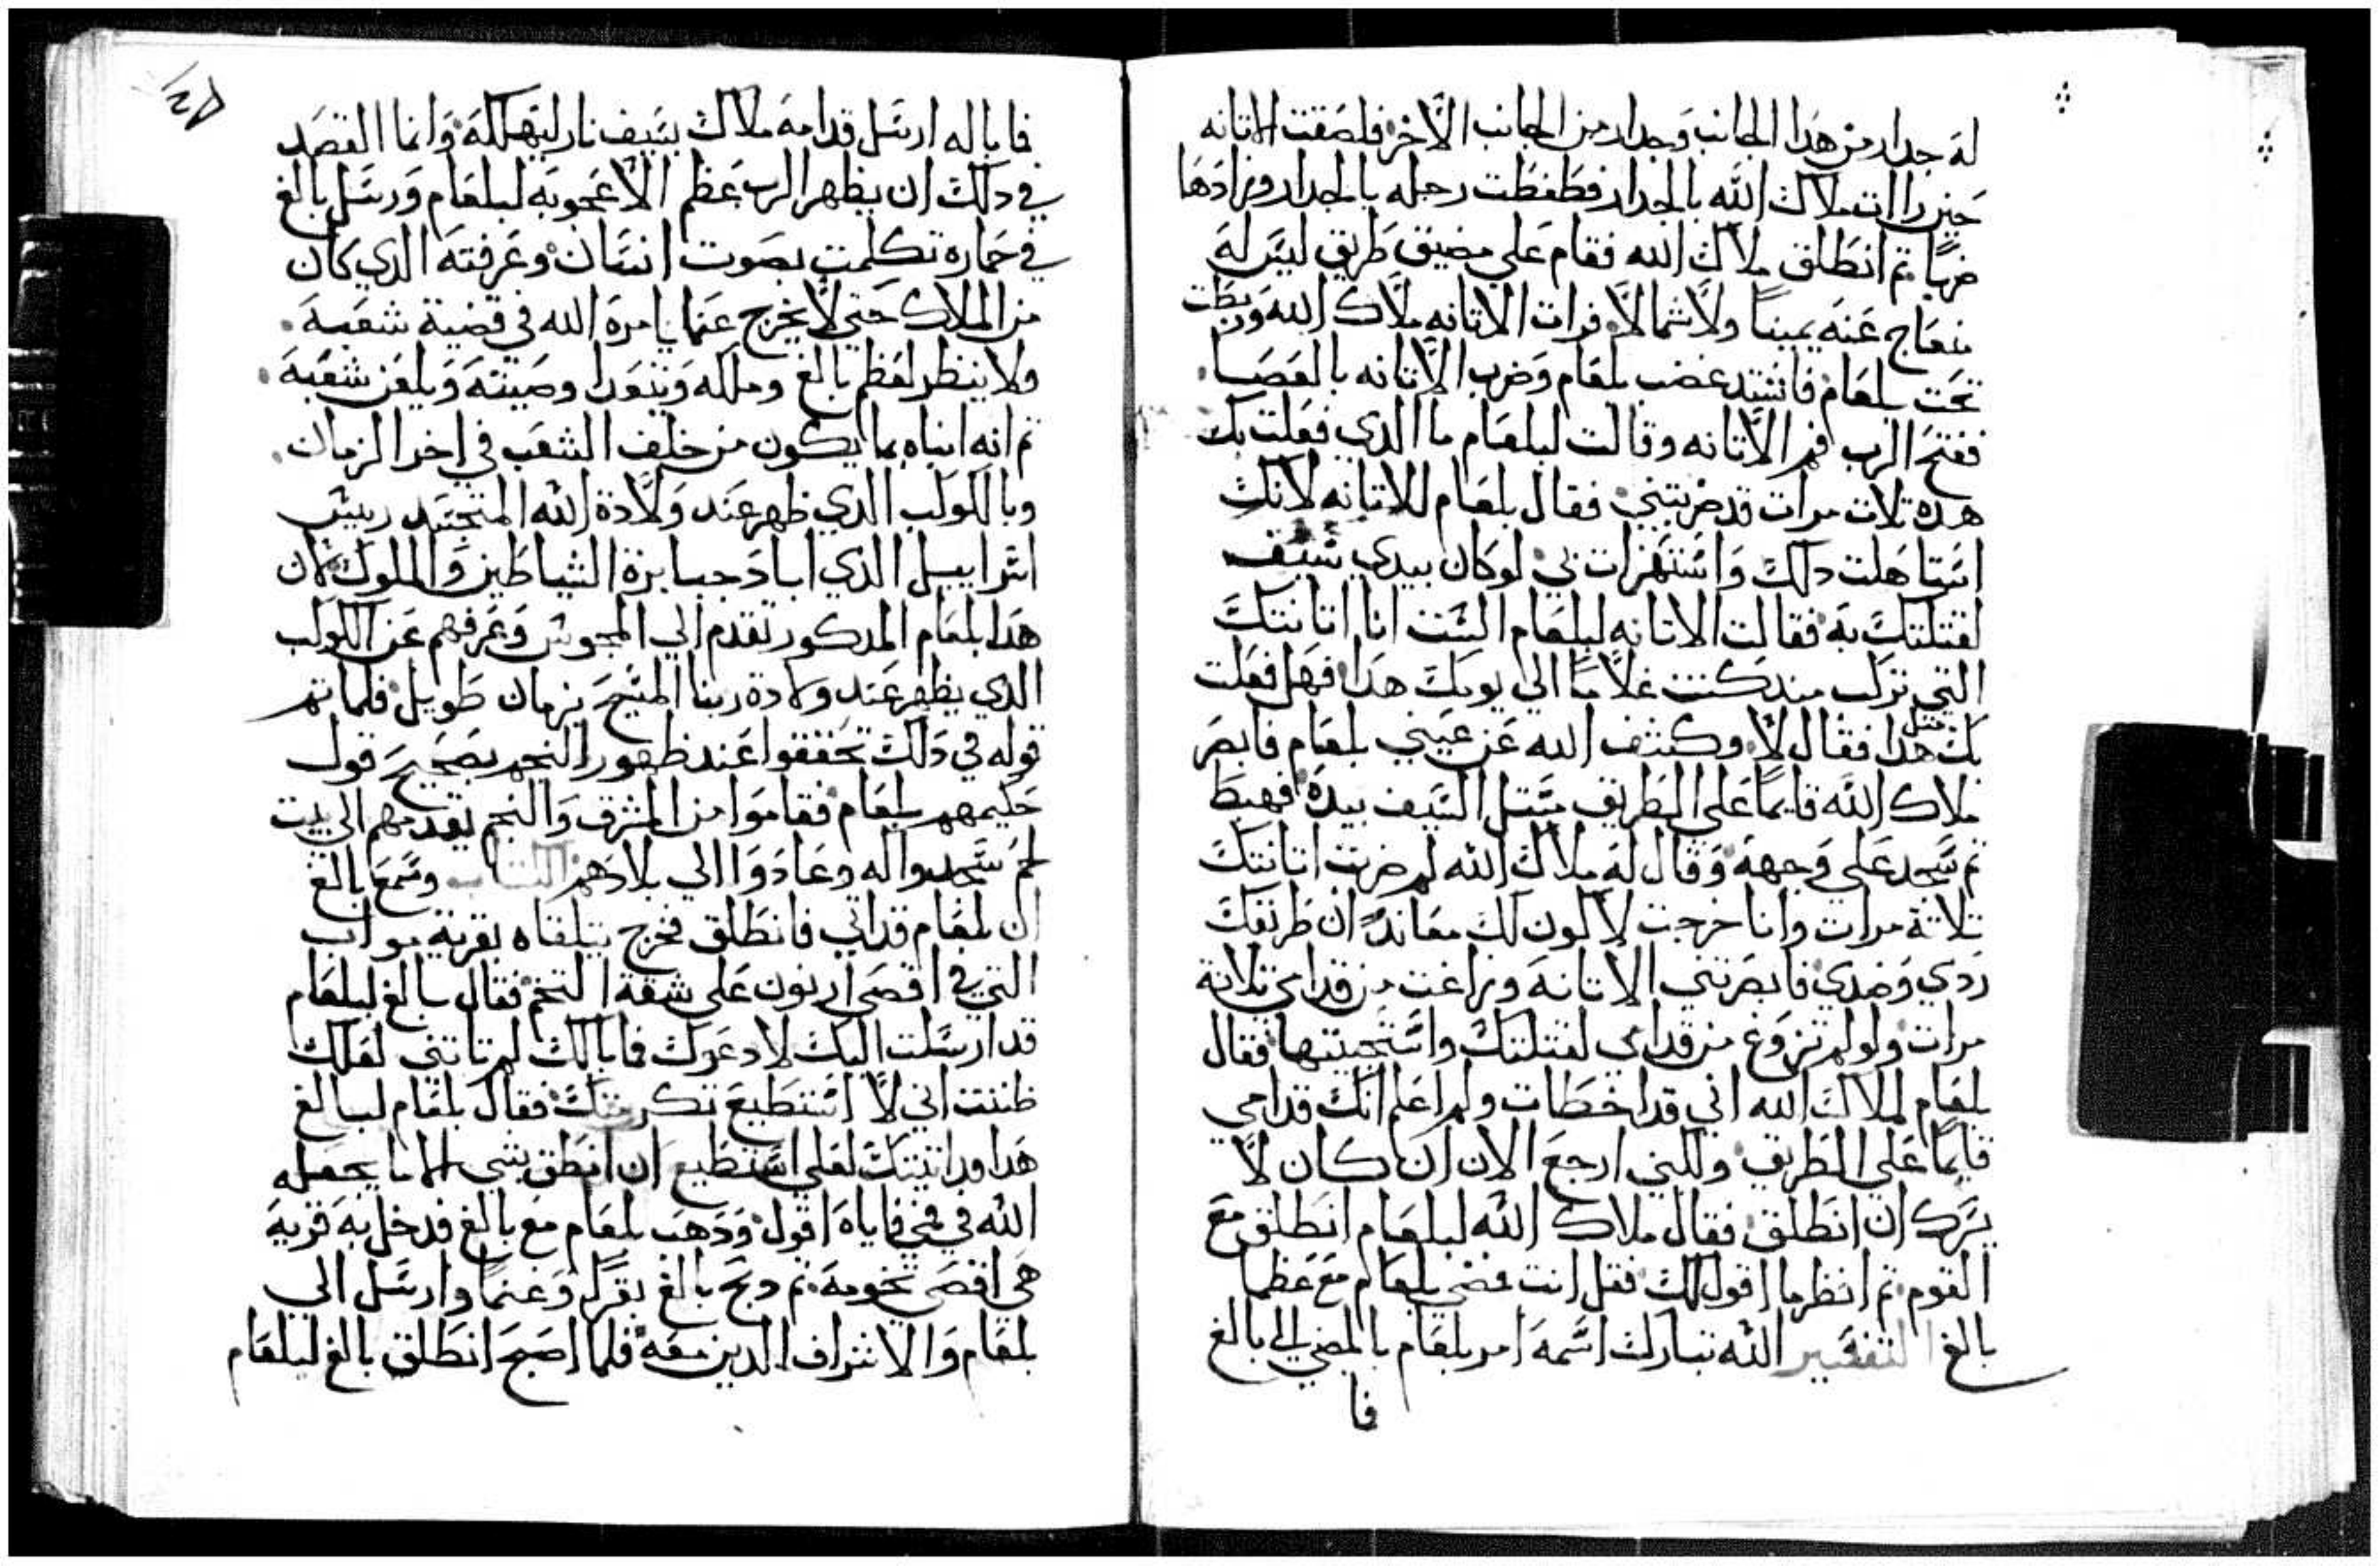 له جدار من هدا الجانب وجدار من الجانب الاخر فلصقت الاتانه
حين راات ملاك الله بالجدار فضغطت رجله بالجدار فزادها
ضربًا تم انطلق ملاك الله فقام علي مضيق طريق ليس له
منعاج عنه يمينًا ولا شمالا فرات الاتانه ملاك الله وربطت
تحت بلعام فاشتد غضب بلعام وضرب الاتانه بالعصا
ففتح الرب فم الاتانه وقالت لبلعام ما الدي فعلت بك
هده تلات مرات قد ضربتني فقال بلعام للاتانه لانك
استاهلت دلك واستهزات بي لو كان بيدي سيف
لقتلتك به فقالت الاتانه لبلعام الست انا اتانتك
التي تركب مند كنت غلامًا الي يومك هدا فهل فعلت
بك متل هدا فقال لا وكشف الله عن عيني بلعام فابصر
ملاك الله قايمًا علي الطريق متل السيف بيده فهبط
تم سجد علي وجهه وقال له ملاك الله لم ضربت اتانتك
تلاتة مرات وانا خرجت لاكون لك معاندًا ان طريقك
ردي وضدي فابصرتني الاتانه وزاغت من قدامي تلاتة
مرات ولو لم تزوغ من قدامي لقتلتك واستحييتها فقال
بلعام لملاك الله اني قد اخطات ولم اعلم انك قدامي
قايمًا علي الطريق ولكني ارجع الان ان كان لا
يسرك ان انطلق فقال ملاك الله لبلعام انطلق مع
القوم تم انظر ما اقول لك فقل انت فمضي بلعام مع عظما
بالغ التفسير الله تبارك اسمه امر بلعام بالمضي الي بالغ
فا
فا باله ارسل قدامه ملاك بسيف نار ليهلكه وانما القصد
في دلك ان يظهر الرب عظم الاعجوبه لبلعام ورسل بالغ
في حماره تكلمت بصوت انسان وعرفته الدي كان
من الملاك حتي لا يخرج عما يامره الله في قضية شعبه
ولا ينظر لعظم بالغ وملكه ويتعدا وصيته ويلعن شعبه
تم انه انباه بما يكون من خلف الشعب في اخر الزمان
وبالكوكب الدي ظهر عند ولادة الله المتجسد رييس
اسراييل الذي اباد جبابرة الشياطين والملوك لان
هدا بلعام المدكور تقدم الي المجوس وعرفهم عن الكوكب
الدي يظهر عند ولادة ربنا المسيح بزمان طويل فلما تم
قوله في دلك تحققوا عند ظهور النجم بصحيح قول
حكيمهم بلعام فقاموا من المشرق والنجم تقدمهم الي بيت
لحم سجدوا له وعادوا الي بلادهم وسمع بالغ
ان بلعام قد اتي فانطلق فخرج يتلقاه بقرية مواب
التي في اقصي ارنون علي شقة التخم فقال بالغ لبلعام
قد ارسلت اليك لادعوك فما بالك لم تاتني لعلك
ظننت اني لا استطيع تكرمتك فقال بلعام لبالغ
هدا قد اتيتك لعلي استطيع ان انطق بشي الا ما يجعله
الله في فمي فاياه اقول ودهب بلعام مع بالغ فدخل به قرية
هي اقصي تخومه تم دبح بالغ بقرًا وغنمًا وارسل الي
بلعام والاشراف الدين معه فلما اصبح انطلق بالغ لبلعام